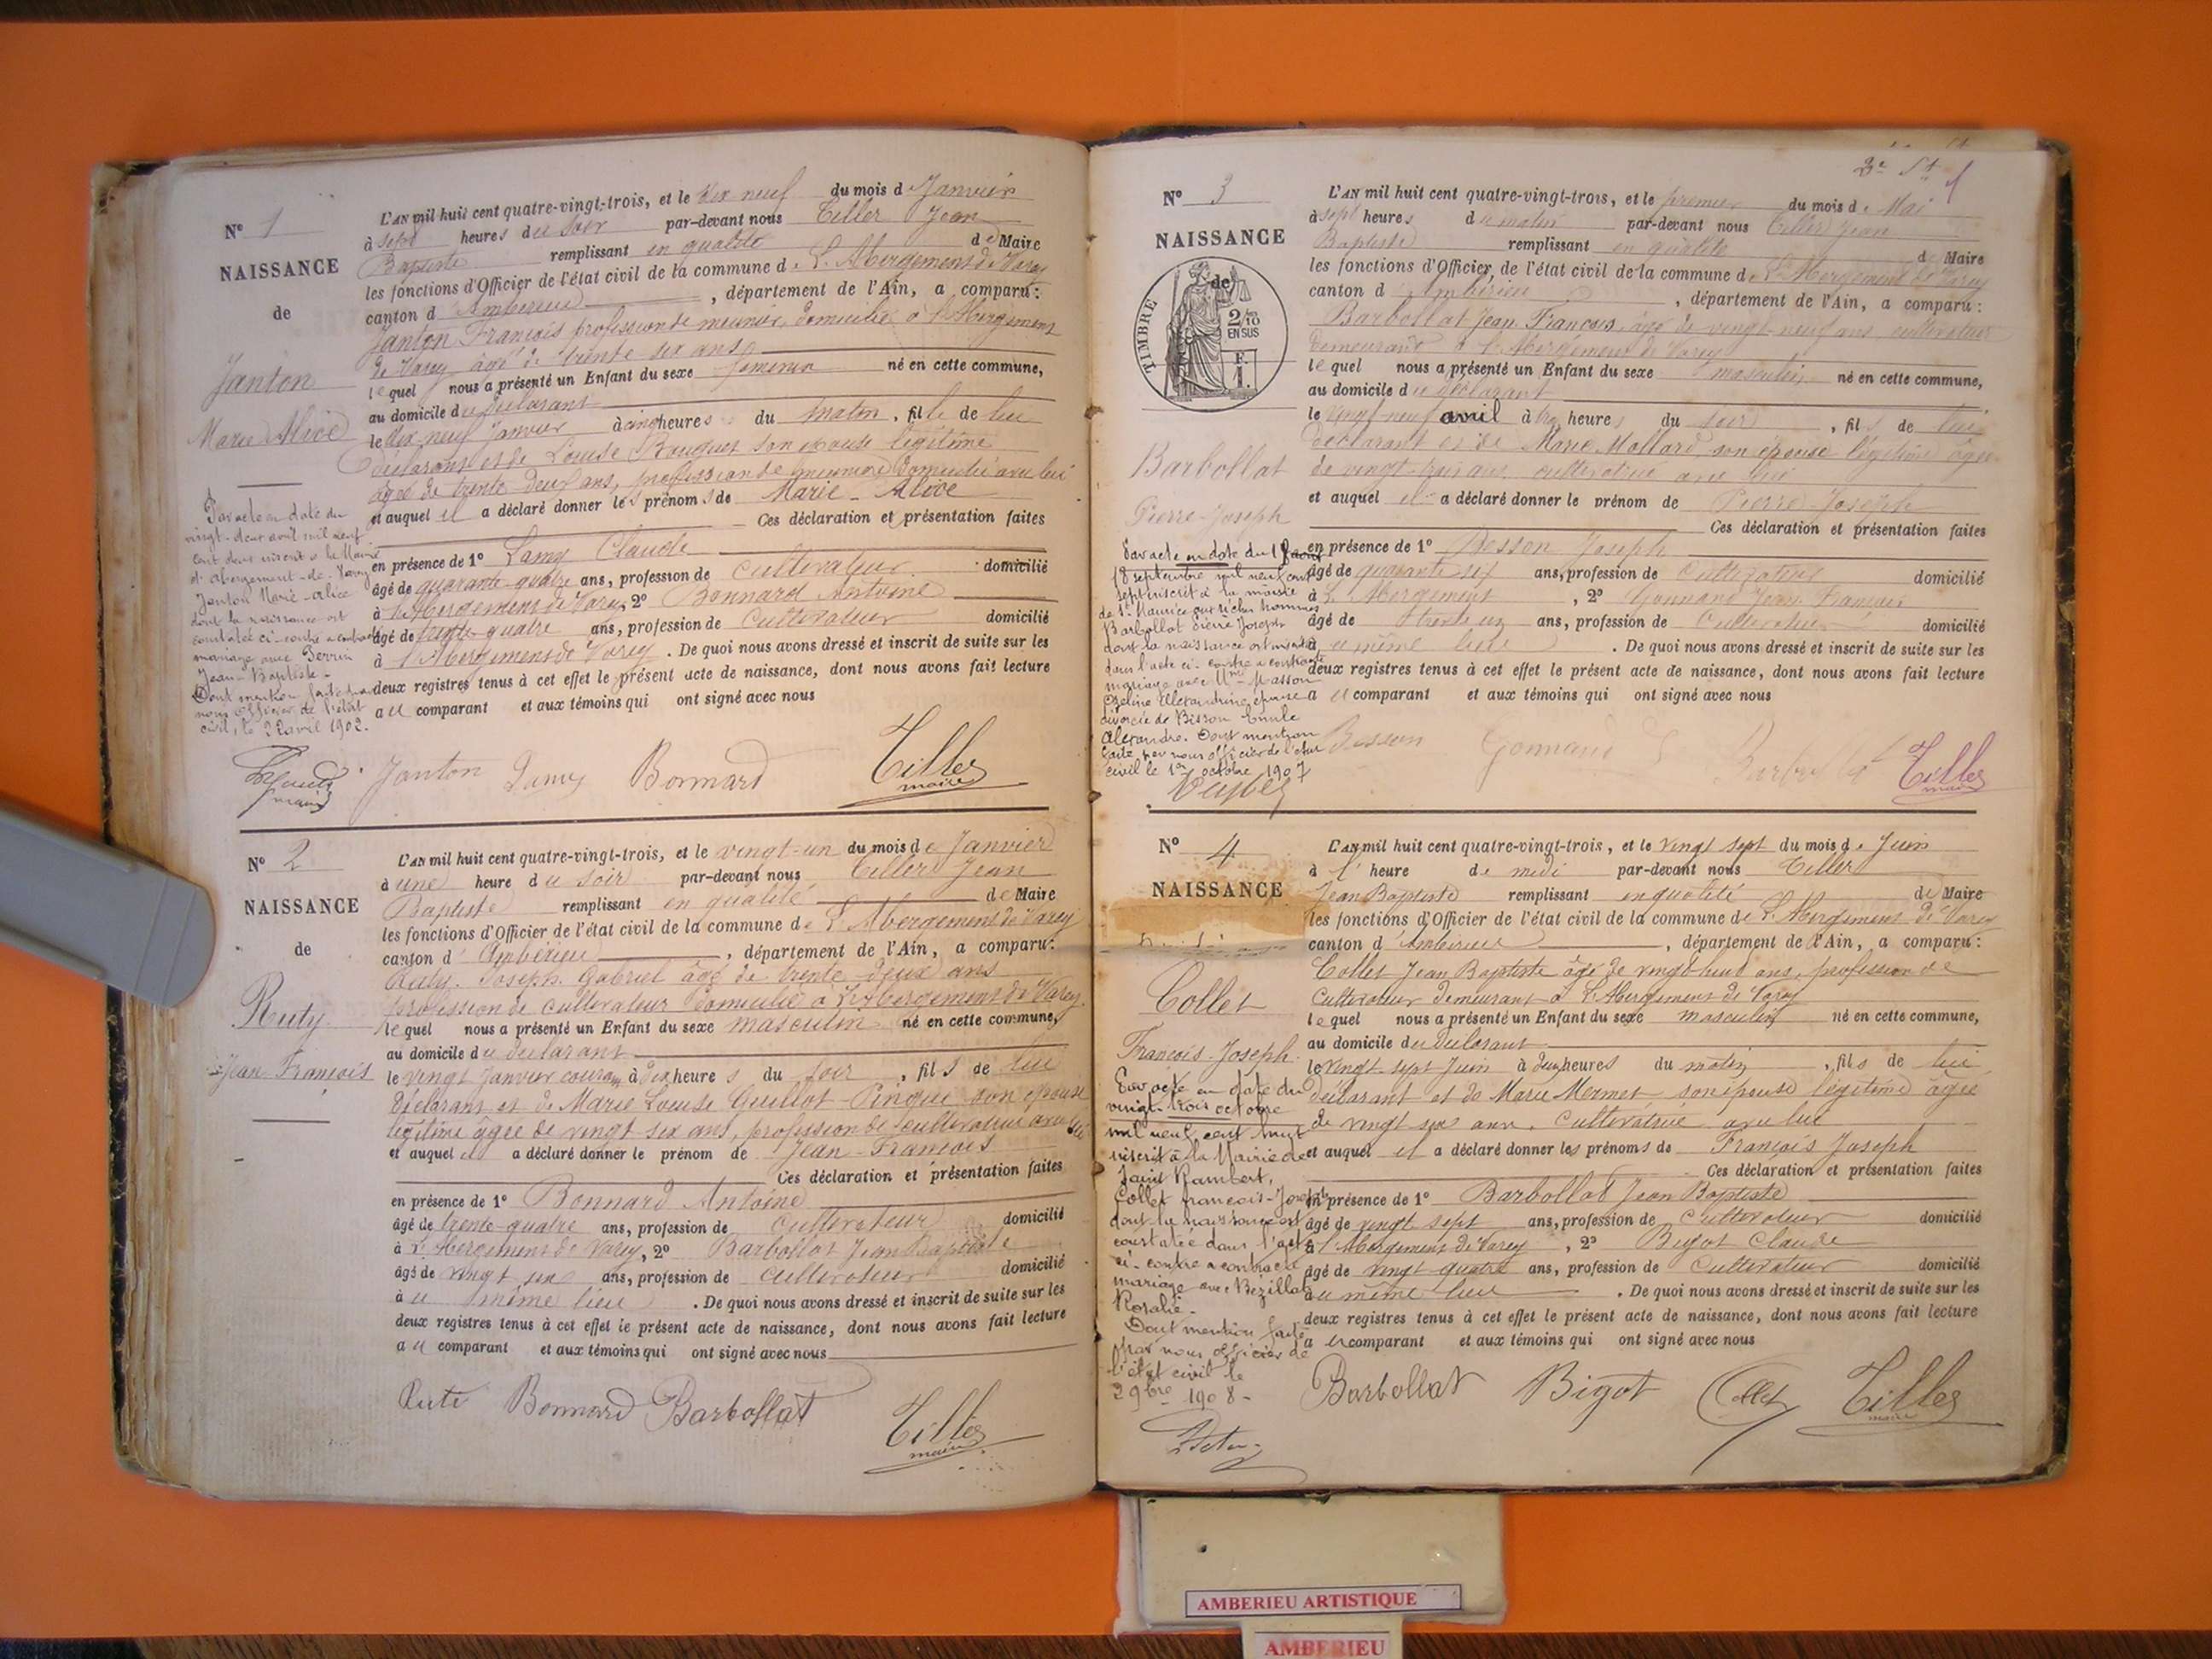 N° 1
NAISSANCE
de
Janton
Marie Alice
L'AN mil huit cent quatre-vingt-trois, et le dix neuf du mois de Janvier
à sept heures du soir par-devant nous Tiller Jean
Baptiste remplissant en qualité de Maire
les fonctions d'Officier de l'état civil de la commune de L'Abergement de Varey
canton d'Ambérieu, département de l'Ain, a comparu:
Janton François profession de meunier, domicilié à l'Abergement
de Varey âgé de trente six ans
lequel nous a présenté un Enfant du sexe féminin né en cette commune,
au domicile du déclarant
le dix neuf Janvier à cinq heures du matin, fille de lui
déclarant et de Louise Bouquet son épouse légitime
âgée de trente deux ans, profession de meunière domiciliée avec lui
et auquel il a déclaré donner les prénoms de Marie-Alice
Ces déclaration et présentation faites
en présence de 1° Lamy Claude
âgé de quarante-quatre ans, profession de cultivateur domicilié
à L'Abergement de Varey, 2° Bonnard Antoine
âgé de trente-quatre ans, profession de Cultivateur domicilié
à l'Abergement de Varey. De quoi nous avons dressé et inscrit de suite sur les
deux registres tenus à cet effet le présent acte de naissance, dont nous avons fait lecture
au comparant et aux témoins qui ont signé avec nous
Par acte en date du
vingt-deux avril mil neuf
cent deux inscrit à la Mairie
d'Abergement-de-Varey
Janton Marie-Alice
dont la naissance est
constatée ci-contre a contracté
mariage avec Perrin
Jean-Baptiste-
Dont mention faite par
nous Officier de l'état
civil, le 22 avril 1902.
maire
Janton Lamy Bonnard Tiller
maire
N° 2
NAISSANCE
de
Ruty
Jean-François
L'AN mil huit cent quatre-vingt-trois, et le vingt-un du mois de Janvier
à une heure du soir par-devant nous Tiller Jean
Baptiste remplissant en qualité de Maire
les fonctions d'Officier de l'état civil de la commune de L'Abergement de Varey
canton d'Ambérieu, département de l'Ain, a comparu:
Ruty Joseph Gabriel âgé de trente-deux ans
profession de cultivateur domicilié à L'Abergement de Varey
lequel nous a présenté un Enfant du sexe masculin né en cette commune,
au domicile du déclarant
le vingt Janvier courant à dix heures du soir, fils de lui
déclarant et de Marie Louise Guillot-Pingue son épouse
légitime âgée de vingt six ans, profession de cultivateur avec lui
et auquel il a déclaré donner le prénom de Jean-François
Ces déclaration et présentation faites
en présence de 1° Bonnard Antoine
âgé de trente-quatre ans, profession de cultivateur domicilié
à L'Abergement de Varey, 2° Barbollat Jean Baptiste
âgé de vingt six ans, profession de cultivateur domicilié
au même lieu. De quoi nous avons dressé et inscrit de suite sur les
deux registres tenus à cet effet le présent acte de naissance, dont nous avons fait lecture
au comparant et aux témoins qui ont signé avec nous
Ruti Bonnard Barbollat Tiller
maire
N° 3
NAISSANCE
de
TIMBRE
2/10
EN SUS
F.
1.
Barbollat
Pierre-Joseph
L'AN mil huit cent quatre-vingt-trois, et le premier du mois de Mai
à sept heures du matin par-devant nous Tiller Jean
Baptiste remplissant en qualité de Maire
les fonctions d'Officier de l'état civil de la commune de L'Abergement de Varey
canton d'Ambérieu, département de l'Ain, a comparu:
Barbollat Jean François, âgé de vingt-neuf ans cultivateur
demeurant à l'Abergement de Varey
lequel nous a présenté un Enfant du sexe masculin né en cette commune,
au domicile du déclarant
le vingt-neuf avril à heures du soir, fils de lui
déclarant et de Marie Mollard, son épouse légitime âgée
de vingt-trois ans cultivatrice avec lui
et auquel il a déclaré donner le prénom de Pierre-Joseph
Ces déclaration et présentation faites
en présence de 1° Besson Joseph
âgé de quarante-six ans, profession de Cultivateur domicilié
à L'Abergement, 2° Gonnand Jean François
âgé de trente un ans, profession de Cultivateur domicilié
au même lieu. De quoi nous avons dressé et inscrit de suite sur les
deux registres tenus à cet effet le présent acte de naissance, dont nous avons fait lecture
au comparant et aux témoins qui ont signé avec nous
Par acte en date du
18 septembre mil neuf cent
sept inscrit à la mairie
de St Maurice
Barbollat Pierre Joseph
dont la naissance est
dans l'acte ci-contre a contracté
mariage avec Masson
Alexandrine épouse
divorcée de Bisson Emile
Alexandre. Dont mention
faite par nous officier de l'état
civil le 1er octobre 1907
Besson Gonnand Barbollat Tiller
maire
N° 4
NAISSANCE
Collet
François-Joseph
L'AN mil huit cent quatre-vingt-trois, et le vingt sept du mois de Juin
à l'heure de midi par-devant nous Tiller
Jean Baptiste remplissant en qualité de Maire
les fonctions d'Officier de l'état civil de la commune de L'Abergement de Varey
canton d'Ambérieu, département de l'Ain, a comparu:
Collet Jean Baptiste âgé de vingt huit ans, profession de
Cultivateur demeurant à L'Abergement de Varey
lequel nous a présenté un Enfant du sexe masculin né en cette commune,
au domicile du déclarant
le vingt-sept Juin à deux heures du matin, fils de lui
déclarant et de Marie Mermet son épouse légitime âgée
de vingt six ans, cultivatrice avec lui
et auquel il a déclaré donner les prénoms de François Joseph
Ces déclaration et présentation faites
en présence de 1° Barbollat Jean Baptiste
âgé de vingt sept ans, profession de Cultivateur domicilié
à l'Abergement de Varey, 2° Bigot Claude
âgé de vingt quatre ans, profession de Cultivateur domicilié
au même lieu. De quoi nous avons dressé et inscrit de suite sur les
deux registres tenus à cet effet le présent acte de naissance, dont nous avons fait lecture
au comparant et aux témoins qui ont signé avec nous
Par acte en date du
vingt-trois octobre
mil neuf cent huit
inscrit à la Mairie de
Saint Rambert,
Collet françois-Joseph
dont la naissance est
constatée dans l'acte
ci-contre a contracté
mariage avec Bézillat
Rosalie-
Dont mention faite
par nous officier de
l'état civil le
2 9bre 1908-
Barbollat Bigot Collet Tiller
maire
AMBERIEU ARTISTIQUE
AMBERIEU